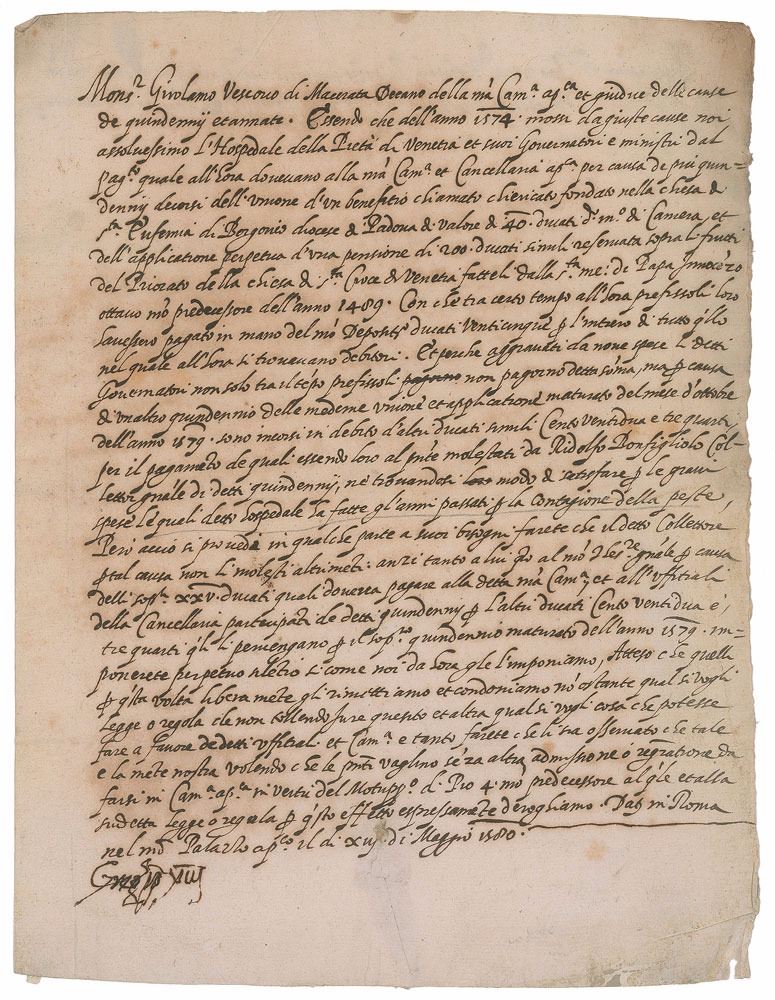 Mons.r Girolamo Vescovo di Macerata Decano della nrã Cam.a ap.ca et giudice delle cause
de quindennij et annate. Essendo che dell'anno 1574. mossi da giuste cause noi
assoluessimo l'Hospedale della Pietà di Venetia et suoi Governatori e ministri dal
pag.to quale all'hora doveuano alla nrã Cam.a et Cancellaria ap.ca per causa de piu quin=
dennij decorsi dell'Unione d'un beneficio chiamato chiericato fondato nella chiesa di
s.ta Eufemia di Borgonio diocese di Padova di valore di 40. ducati d. m.o di Camera, et
dell'applicatione perpetua d'una pensione di 200. ducati simil reservata sopra li frutti
del Priorato della chiesa di s.ta Croce di Venetia fatteli dalla s.ta me: di Papa Innocẽzo
ottavo nrõ predecessore dell'anno 1489. Con che tra certo tempo all'hora prefissoli loro
havessero pagato in mano del nrõ Deposit.o ducati venticinque p l'intiero di tutto q̃llo
nel quale all'hora si trovavano debitori. Et perche aggravati da nove spese li detti
Governatori non solo tra il tẽpo prefissoli pagorno non pagorno detta sõma, ma p causa
di un altro quindennio delle medeme unione et applicatione maturato del mese d'ottobre
dell'anno 1579. sono incorsi in debito d'altri ducati simili Cento ventidua e tre quarti,
per il pagamẽto de quali essendo loro al pñte molestati da Ridolfo Bonfigliolo Col=
lettor gñale di detti quindennij, ne trovandosi loro modo di satisfare p le gravi
spese le quali detto hospedale ha fatte gl'anni passati p la contagione della peste,
Però acciò si proveda in qualche parte a suoi bisogni farete che il detto Collettore
p tal causa non li molesti altrimẽti: anzi tanto a lui q̃to al nrõ Thes.re gñale p causa
delli sop.ti XXV. ducati quali doveva pagare alla detta nrã Cam.a, et all'Uffitiali
della Cancellaria participãti de detti quindennij p l'altri ducati Cento ventidua e,
tre quarti q̃li li pervengano p il sop.to quindennio maturato dell'anno 1579. im=
ponerete perpetuo silẽtio si come noi da hora gle l'imponiamo, Atteso che quelli
p q̃sta volta liberamẽte gli rimettiamo et condoniamo nõ ostante qual si vogli
legge o regola che non tollendo jure quesito et altra qual si vogli cosa che potesse
fare a favore de detti Uffitiali et Cam.a e tanto farete che li sia osservato che tale
e la mẽte nostra volendo che le pñti vaglino sẽza altra admissione ò registratione da
farsi in Cam.a ap.ca in vertù del Motupp.o di Pio 4. nrõ predecessore al q̃le et alla
sudetta legge o regola p q̃sto effetto espressamẽte deroghiamo. Dat. in Roma
nel nrõ Palazzo ap.co il di xvij. di Maggio 1580.
Greg.s pp XIII